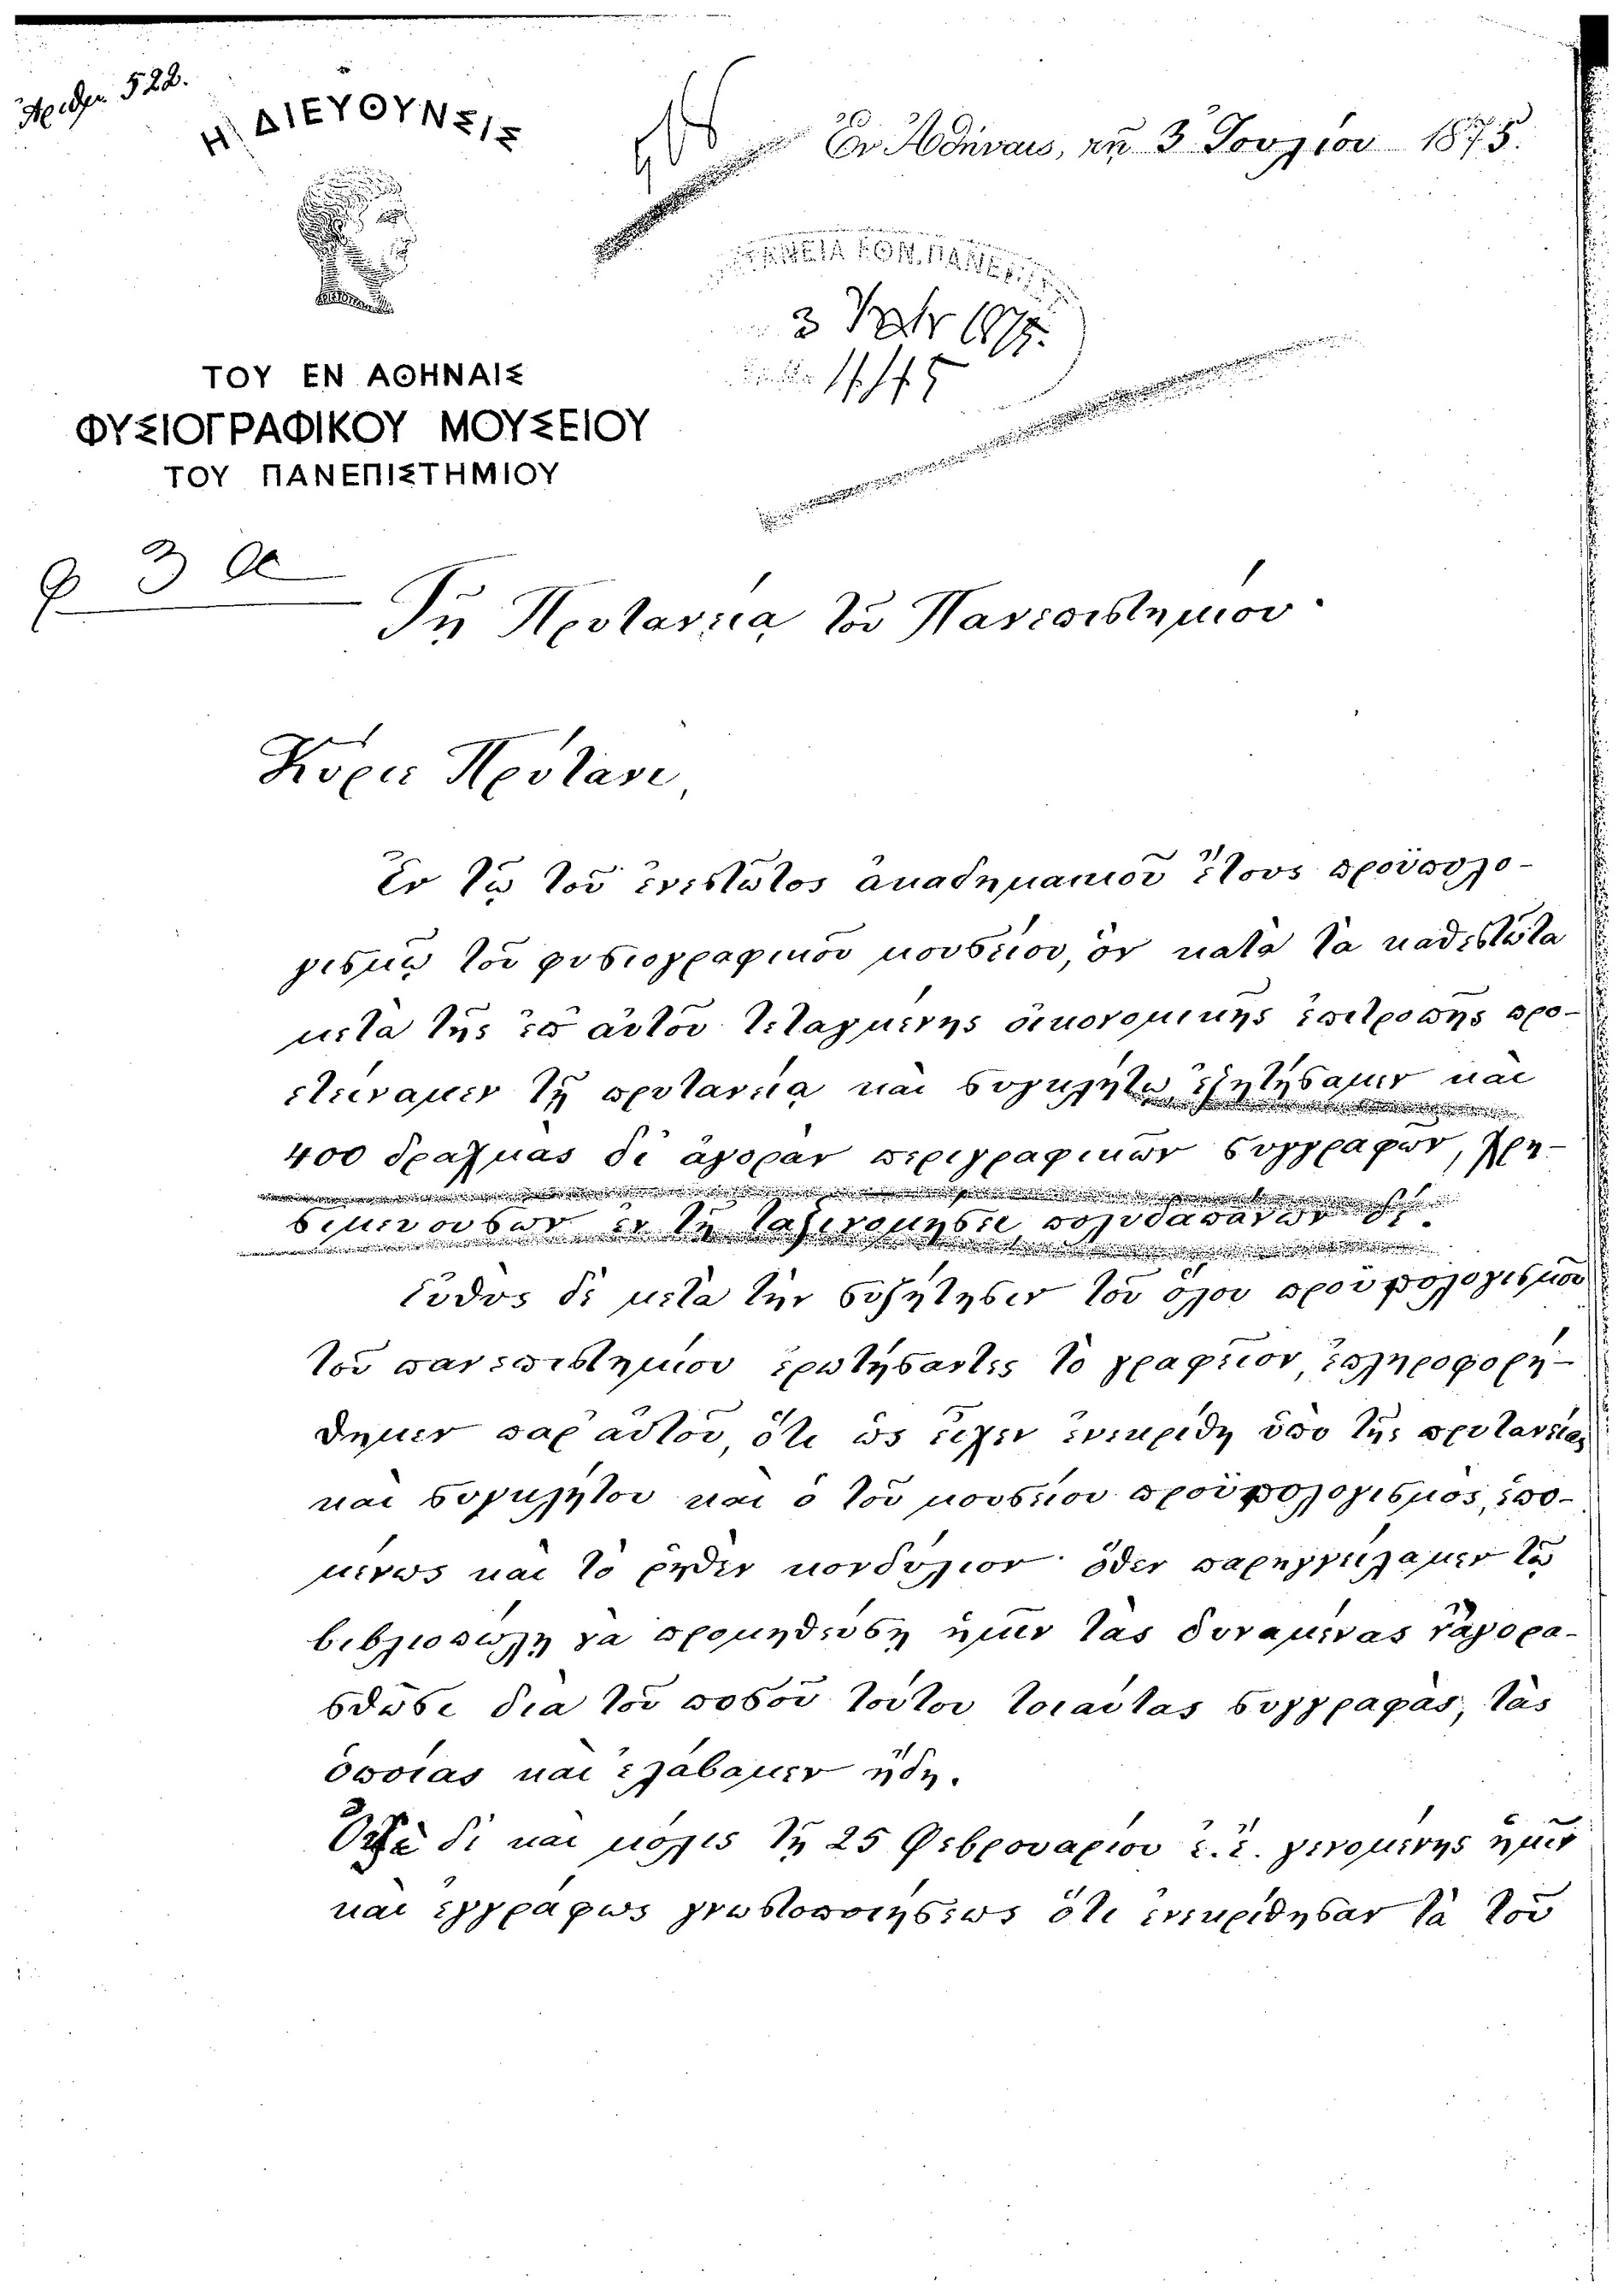 Ἀριθμ. 522.
Η ΔΙΕΥΘΥΝΣΙΣ
Ἐν Ἀθήναις, τῇ 3 Ἰουλίου 1875.
ΤΑΝΕΙΑ ΕΘΝ. ΠΑΝΕΠΙΣ
3 1875.
ΤΟΥ ΕΝ ΑΘΗΝΑΙΣ
ΦΥΣΙΟΓΡΑΦΙΚΟΥ ΜΟΥΣΕΙΟΥ
ΤΟΥ ΠΑΝΕΠΙΣΤΗΜΙΟΥ
3 α
Τῇ Πρυτανείᾳ τοῦ Πανεπιστημίου.
Κύριε Πρύτανι,
Ἐν τῷ τοῦ ἐνεστῶτος ἀκαδημαικοῦ ἔτους προϋπολο-
γισμῷ τοῦ φυσιογραφικοῦ μουσείου, ὃν κατὰ τὰ καθεστῶτα
μετὰ τῆς ἐπ' αὐτοῦ τεταγμένης οἰκονομικῆς ἐπιτροπῆς προ-
ετείναμεν τῇ πρυτανείᾳ καὶ συγκλήτῳ, ἐζητήσαμεν καὶ
400 δραχμὰς δι' ἀγορὰν περιγραφικῶν συγγραφῶν, χρη-
σιμευουσῶν ἐν τῇ ταξινομήσει, πολυδαπάνων δέ.
Εὐθὺς δὲ μετὰ τὴν συζήτησιν τοῦ ὅλου προϋπολογισμοῦ
τοῦ πανεπιστημίου ἐρωτήσαντες τὸ γραφεῖον, ἐπληροφορή-
θημεν παρ' αὐτοῦ, ὅτι ὡς εἶχεν ἐνεκρίθη ὑπὸ τῆς πρυτανείας
καὶ συγκλήτου καὶ ὁ τοῦ μουσείου προϋπολογισμός, ἑπο-
μένως καὶ τὸ ῥηθὲν κονδύλιον· ὅθεν παρηγγείλαμεν τῷ
βιβλιοπώλῃ νὰ προμηθεύσῃ ἡμῖν τὰς δυναμένας ν' ἀγορα-
σθῶσι διὰ τοῦ ποσοῦ τούτου τοιαύτας συγγραφάς, τὰς
ὁποίας καὶ ἐλάβαμεν ἤδη.
Ὀψὲ δὲ καὶ μόλις τῇ 25 Φεβρουαρίου ἐ. ἔ. γενομένης ἡμῖν
καὶ ἐγγράφως γνωστοποιήσεως ὅτι ἐνεκρίθησαν τὰ τοῦ